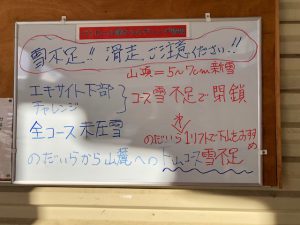 雪不足!! 滑走、ご注意ください!!
山頂=5~7cm新雪
エキサイト下部
チャレンジ
コース雪不足で閉鎖
全コース未圧雪
のだいら1リフトで下山をおすすめ
のだいらから山麓への下山コース雪不足